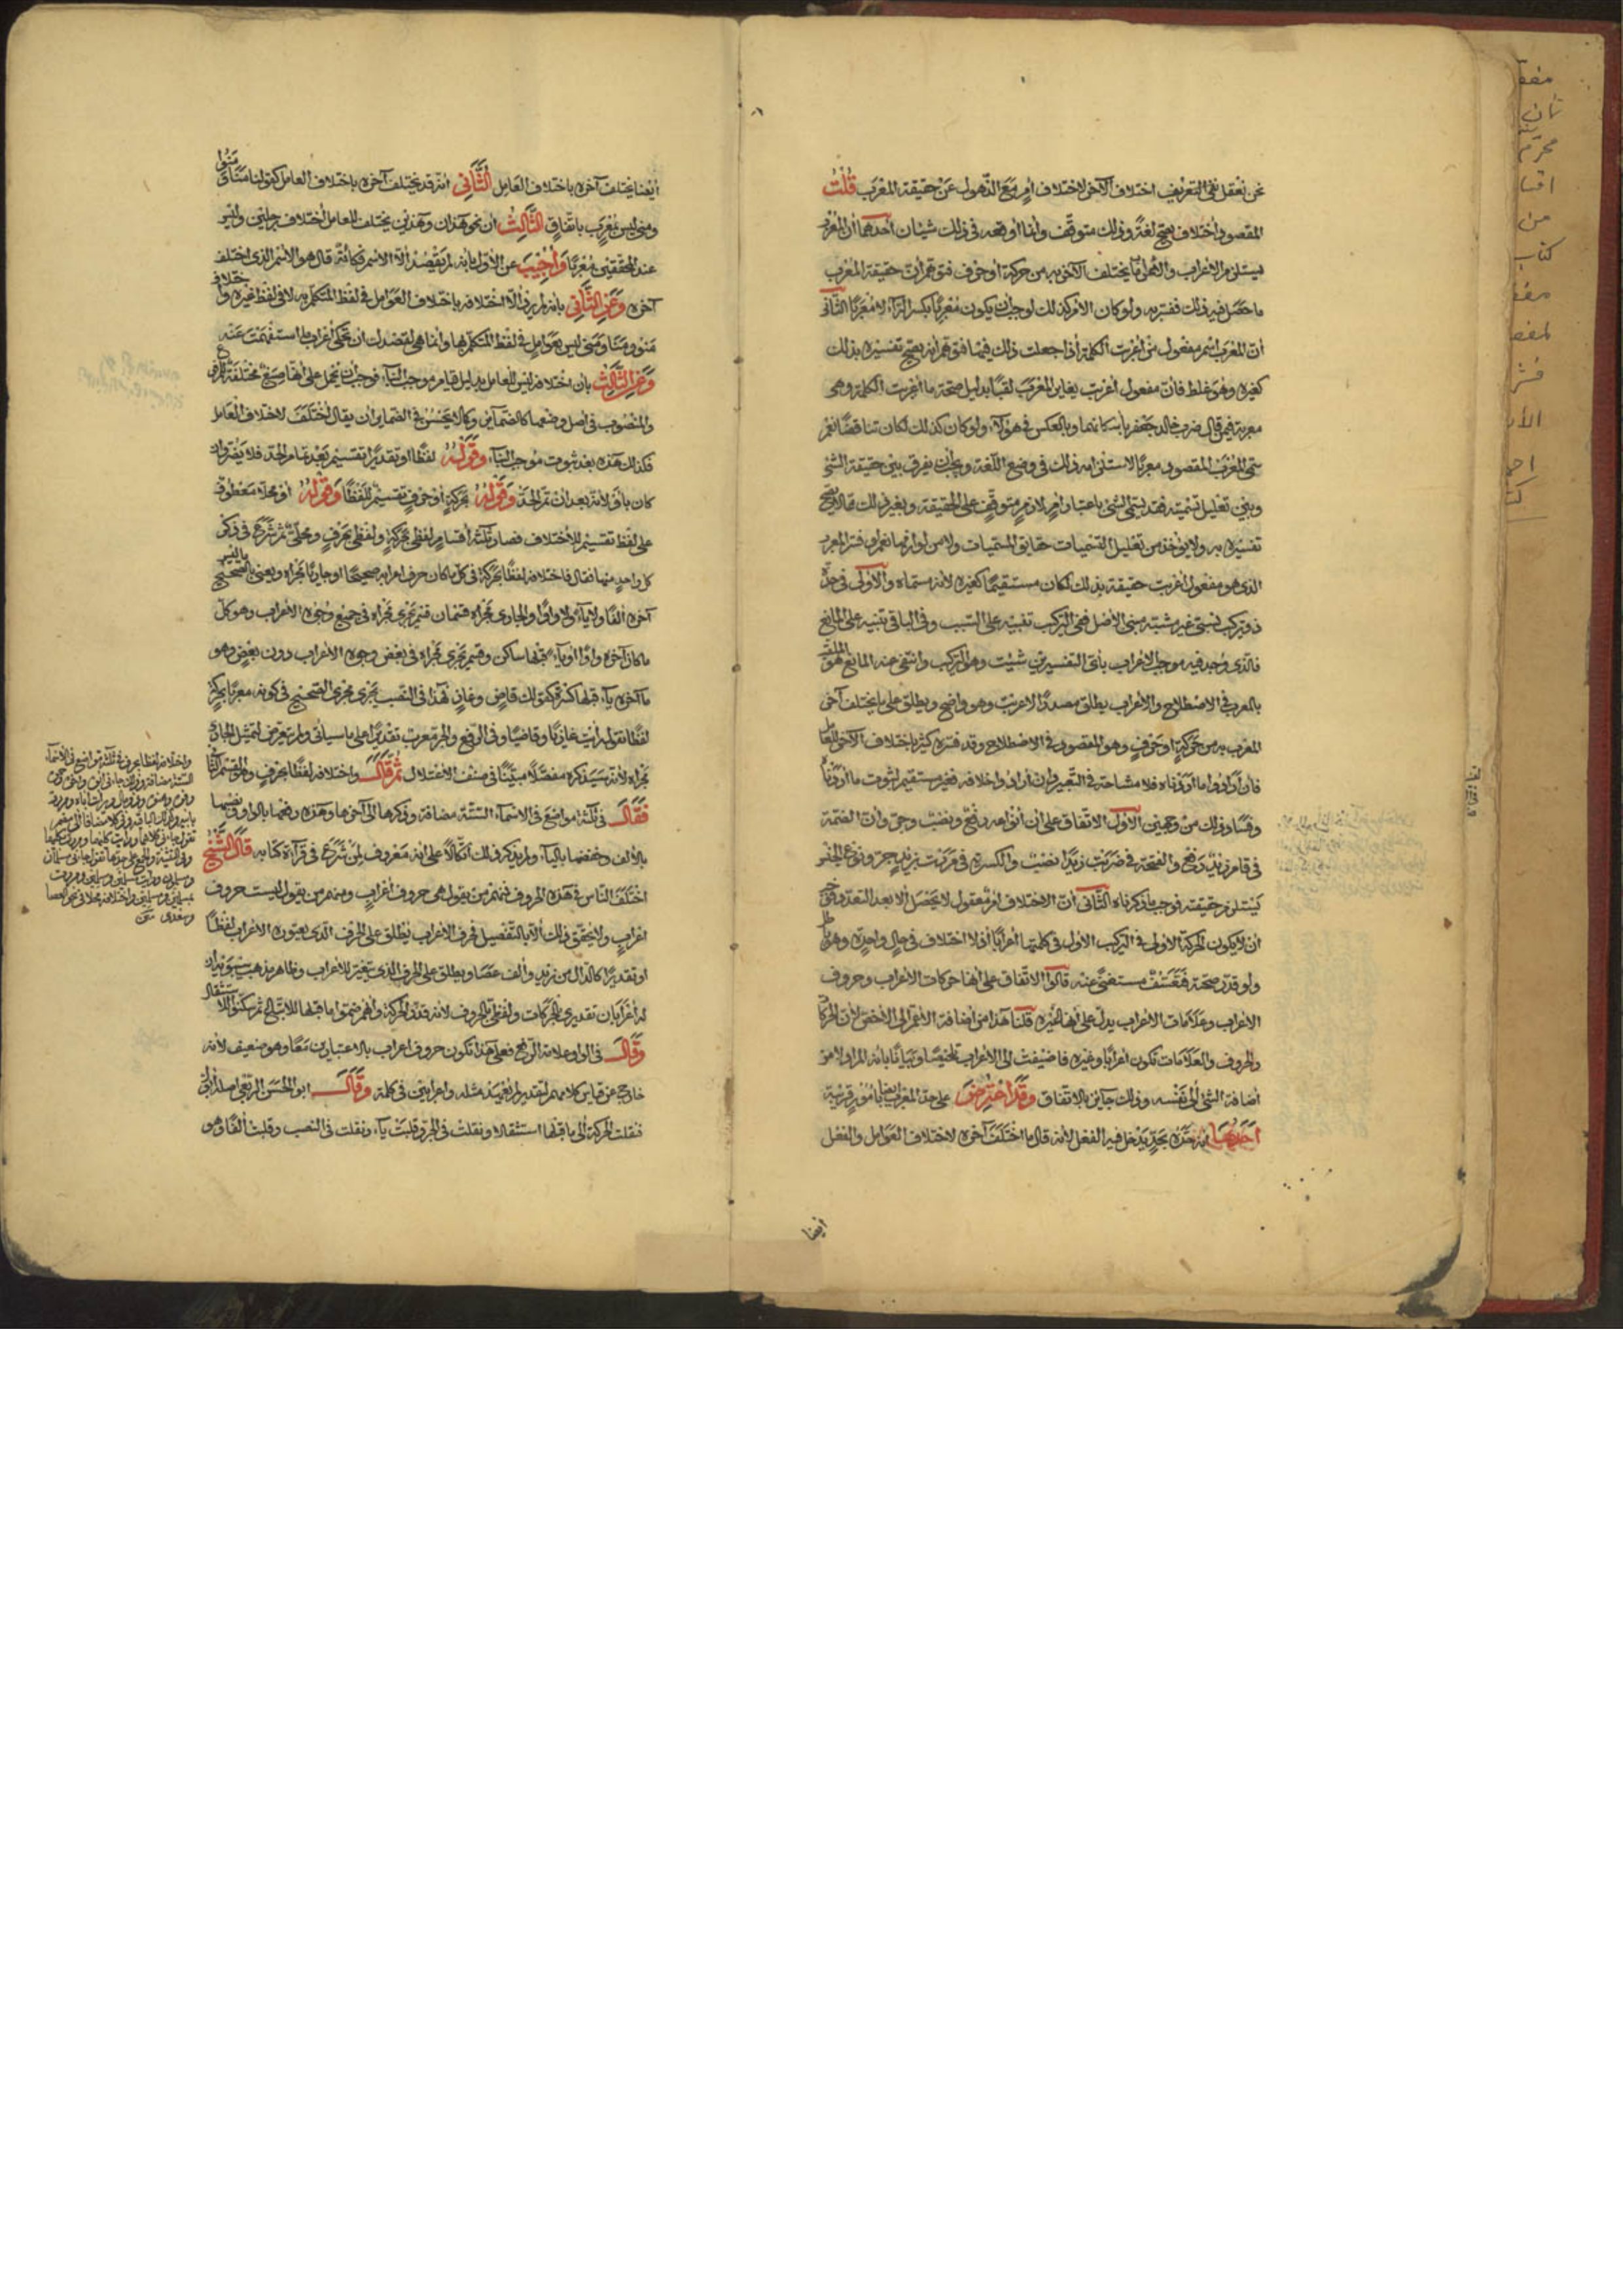 نحن نعقل نفي التعريف اختلاف الآخر لاختلاف أمر مع الذهول عن حقيقة المعرب قلت
المقصود اختلاف يصح لغة وذلك متوقف وانما أوقعه في ذلك شيئان أحدهما أن المعرب
يستلزم الاعراب والاعراب ما يختلف الآخر به من حركة أو حرف فتوهم أن حقيقة المعرب
ما حصل فيه ذلك ففسره به ولو كان الأمر كذلك لوجب أن يكون معربا بكسر الراء لا معربا الثاني
أن المعرب اسم مفعول من أعربت الكلمة اذا جعلت ذلك فيها فتوهم أنه يصح تفسيره بذلك
كغيره وهو غلط فان مفعول أعربت يغاير المعرب لقبا بدليل صحة ما أعربت الكلمة وهي
معربة فيمن قال ضرب خالد جعفر باسكانهما وبالعكس في هؤلاء ولو كان كذلك لكان تناقضا نعم
سمي المعرب المقصود معربا لاستلزامه ذلك في وضع اللغة ويجب أن يفرق بين حقيقة الشئ
وبين تعليل تسميته فقد يسمى الشئ باعتبار أمر لازم متوقف على الحقيقة وبغير ذلك مما لا يصح
تفسيره به ولا يؤخذ من تعليل التسميات حقايق المسميات ولا من لوازمها نعم لو فسر المعرب
الذي هو مفعول أعربت حقيقة بذلك لكان مستقيما كغيره لأنه مسماه والأولى في حده
ذو تركيب نسبي غير مشبه مبني الأصل ففي التركيب تنبيه على السبب وفي الباقي تنبيه على المانع
فالذي وجد فيه موجب الاعراب بأي التفسيرين شئت وهو التركيب وانتفى عنه المانع هو الملقب
بالمعرب في الاصطلاح والاعراب يطلق مصدرا لاعربت وهو واضح ويطلق على ما يختلف آخر
المعرب به من حركة أو حرف وهو المقصود في الاصطلاح وقد فسره كثير باختلاف الآخر للعامل
فان أرادوا ما أردناه فلا مشاحة في التعبير وان أرادوا خلافه فغير مستقيم لثبوت ما أردنا
وفساد ذلك من وجهين الأول الاتفاق على ان أنواعه رفع ونصب وجر وأن الضمة
في قام زيد رفع والفتحة في ضربت زيدا نصب والكسرة في مررت بزيد جر ونوع الجنس
يستلزم حقيقته فوجب ما ذكرناه الثاني أن الاختلاف أمر معقول لا يحصل الا بعد التعدد فحق
أن لا يكون الحركة الأولى في التركيب الأول في كلمتها أعرابا اذ لا اختلاف في حال واحدة وهو باطل
ولو قدر صحته فتعسف مستغنى عنه قالوا الاتفاق على أنها حركات الاعراب وحروف
الاعراب وعلامات الاعراب يدل على أنها غيره قلنا هذا من اضافة الأعم الى الأخص لأن الحركات
والحروف والعلامات تكون اعرابا وغيره فاضيفت الى الاعراب تخصيصا وبيانا بأنه المراد لا من
اضافة الشئ الى نفسه وذلك جايز بالاتفاق وقد اعترض على حد المعرب أيضا بأمور قريبة
أحدها أنه حده بحد يدخل فيه الفعل لأنه قال ما اختلف آخره لاختلاف العوامل والفعل
أيضا
أيضا يختلف آخره باختلاف العامل الثاني انه قد يختلف آخره باختلاف العامل كقولنا منا و منوا
ومني ليس بمعرب باتفاق الثالث أن نحو هذان وهذين يختلف للعامل اختلاف رجلين وليس
عند المحققين معربا وأجيب عن الأول بأنه لم يقصد الا الاسم فكأنه قال هو الاسم الذي اختلف
آخره وعن الثاني بأنه لم يرد الا اختلافه باختلاف العوامل في لفظ المتكلم به لا في لفظ غيره واختلاف
منو ومنا ومني ليس بعوامل في لفظ المتكلم بها وانما هي لقصد أن تحكى اعراب ما استفهمت عنه
وعن الثالث بأن اختلافه ليس للعامل بدليل قيام موجب البناء فوجب أن يحمل على أنها صيغ مختلفة للمرفوع
والمنصوب في أصل وضعها كالضماير وكما لا يحسن في الضماير أن يقال اختلفت لاختلاف العامل
فكذلك هذه بعد ثبوت موجب البناء وقوله لفظا أو تقديرا تقسيم بعد تمام الحد فلا يضر واذا
كان بأو لأنه بعد ان تم الحد وقوله بحركة أو حرف تقسيم للفظا وقوله أو محلا معطوف
على لفظ تقسيم للاختلاف فصار ثلثة أقسام لفظي بحركة ولفظي بحرف ومحلي ثم شرع في ذكر
كل واحد منها فقال فاختلافه لفظا بحركة في كل ما كان حرف اعرابه صحيحا أو جاريا مجراه ويعني بالصحيح ما ليس
آخره ألفا ولا ياء ولا واوا والجاري مجراه قسمان قسم يجري مجراه في جميع وجوه الاعراب وهو كل
ما كان آخره واوا أو ياء قبلها ساكن وقسم يجري مجراه في بعض وجوه الاعراب دون بعض وهو
ما آخره ياء قبلها كسرة كقولك قاض وغاز فهذا في النصب يجري مجرى الصحيح في كونه معربا بحركة
لفظا تقول رأيت غازيا وقاضيا وفي الرفع والجر معرب تقديرا على ما سيأتي ولم يتعرض لتمثيل الجاري
مجراه لأنه سيذكره مفصلا مبينا في صنف الاعتلال ثم قال واختلافه لفظا بحرف وهو القسم الثاني
فقال في ثلثة مواضع في الاسماء الستة مضافة وذكرها الى آخرها وهذه رفعها بالواو ونصبها
بالألف وخفضها بالياء ولم يذكر ذلك اتكالا على انه معروف لمن شرع في قراءة كتابه قال الشيخ
اختلف الناس في هذه الحروف فمنهم من يقول هي حروف اعراب ومنهم من يقول ليست حروف
اعراب ولا يتحقق ذلك الا بالتفصيل فحرف الاعراب يطلق على الحرف الذي يعتوره الاعراب لفظا
أو تقديرا كالدال من زيد وألف عصا ويطلق على الحرف الذي يتغير للاعراب وظاهر مذهب سيبويه أن
له اعرابان تقديري بالحركات ولفظي بالحروف لأنه قدر الحركة وأنهم ضموا ما قبلها للاتباع ثم سكنوا للاستثقال
وقال في الواو علامة الرفع فعلى هذا تكون حروف اعراب بالاعتبارين معا وهو ضعيف لأنه
خارج عن قياس كلامهم لتقدير لم يعهد مثله واعرابين في كلمة وقال أبو الحسن الربعي أصله أبو
فنقلت الحركة الى ما قبلها استثقالا ونقلت في الجر وقلبت ياء ونقلت في النصب وقلبت ألفا وهو
واختلافه لفظا بحرف في ثلثة مواضع في الأسماء
الستة مضافة